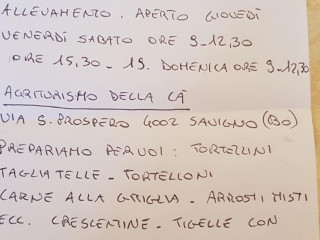 ALLEVAMENTO. APERTO GIOVEDÌ
VENERDÌ SABATO ORE 9-12,30
ORE 15,30-19. DOMENICA ORE 9-12,30
AGRITURISMO DELLA CÀ
VIA S. PROSPERO 4002 SAVIGNO (BO)
PREPARIAMO PER VOI: TORTELLINI
TAGLIATELLE - TORTELLONI
CARNE ALLA GRIGLIA - ARROSTI MISTI
ECC. CRESCENTINE - TIGELLE CON